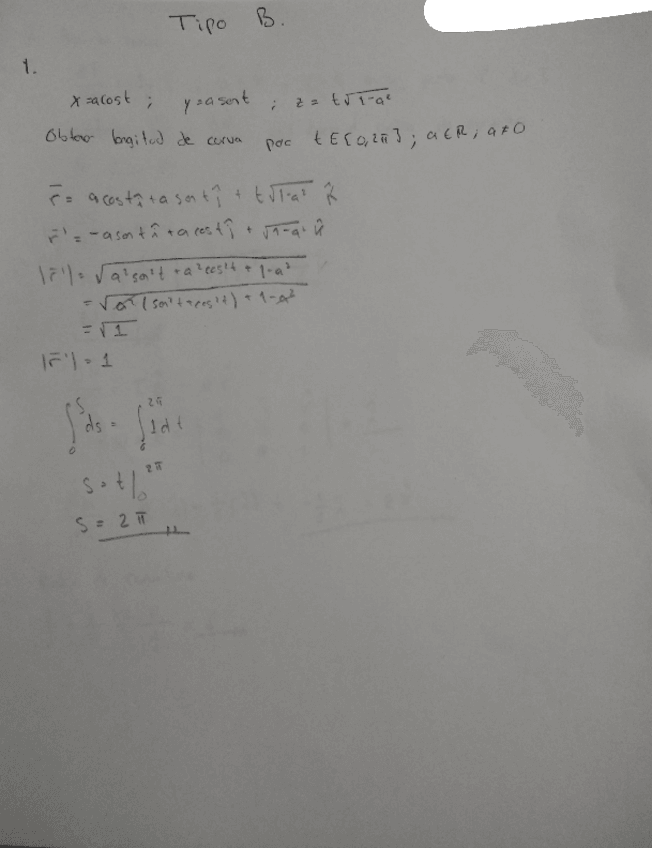 Tipo B.
1.
x=acost ; y=asent ; z= t√1-a²
Obtener longitud de curva por t∈[0,2π] ; a∈R ; a≠0
r̄= acost î + a sent ĵ + t√1-a² k̂
r̄'= -asent î + a cost ĵ + √1-a² k̂
|r̄'|= √a²sen²t + a²cos²t + 1-a²
= √a²(sen²t+cos²t) + 1-a²
= √1
|r̄'| = 1
∫₀ˢ ds = ∫₀²π 1dt
s = t|₀²π
s = 2π